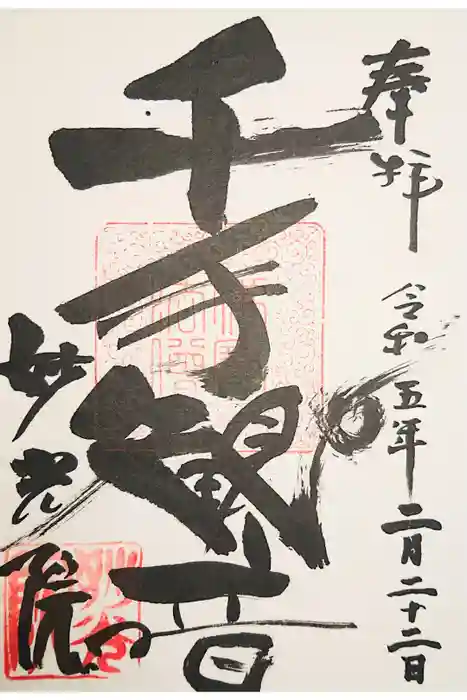 奉拝 令和五年二月二十二日
千手観音
妙光院